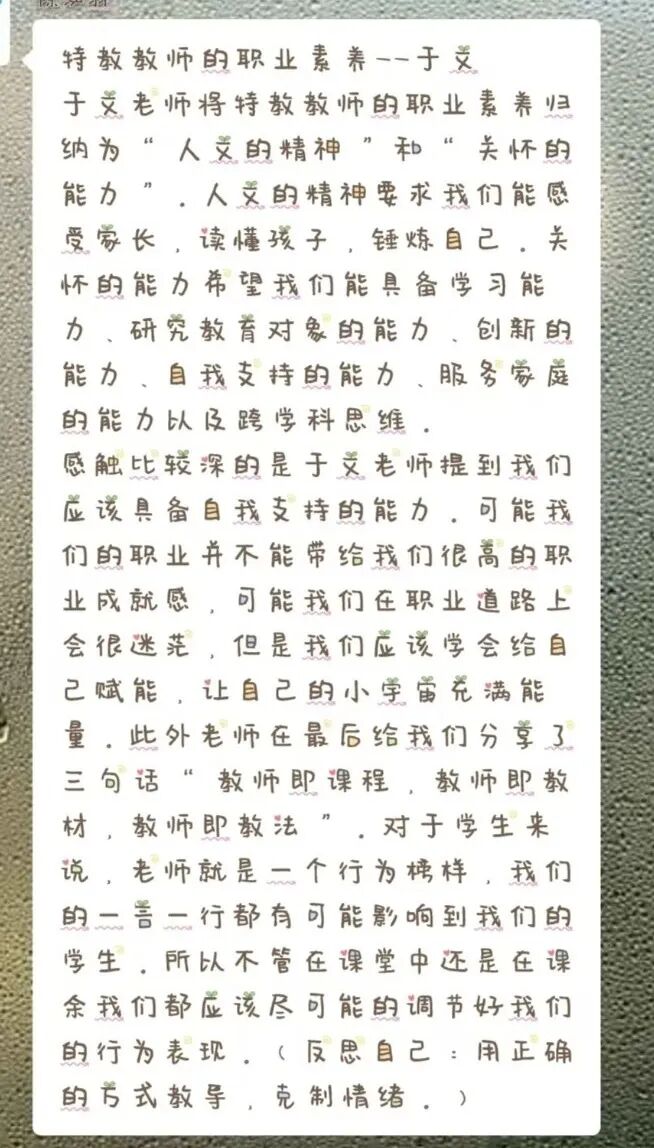 特教教师的职业素养--于文
于文老师将特教教师的职业素养归
纳为“人文的精神”和“关怀的
能力”.人文的精神要求我们能感
受家长,读懂孩子,锤炼自己.关
怀的能力希望我们能具备学习能
力、研究教育对象的能力、创新的
能力、自我支持的能力、服务家庭
的能力以及跨学科思维.
感触比较深的是于文老师提到我们
应该具备自我支持的能力.可能我
们的职业并不能带给我们很高的职
业成就感,可能我们在职业道路上
会很迷茫,但是我们应该学会给自
己赋能,让自己的小宇宙充满能
量.此外老师在最后给我们分享了
三句话“教师即课程,教师即教
材,教师即教法”.对于学生来
说,老师就是一个行为榜样,我们
的一言一行都有可能影响到我们的
学生.所以不管在课堂中还是在课
余我们都应该尽可能的调节好我们
的行为表现.(反思自己:用正确
的方式教导,克制情绪.)